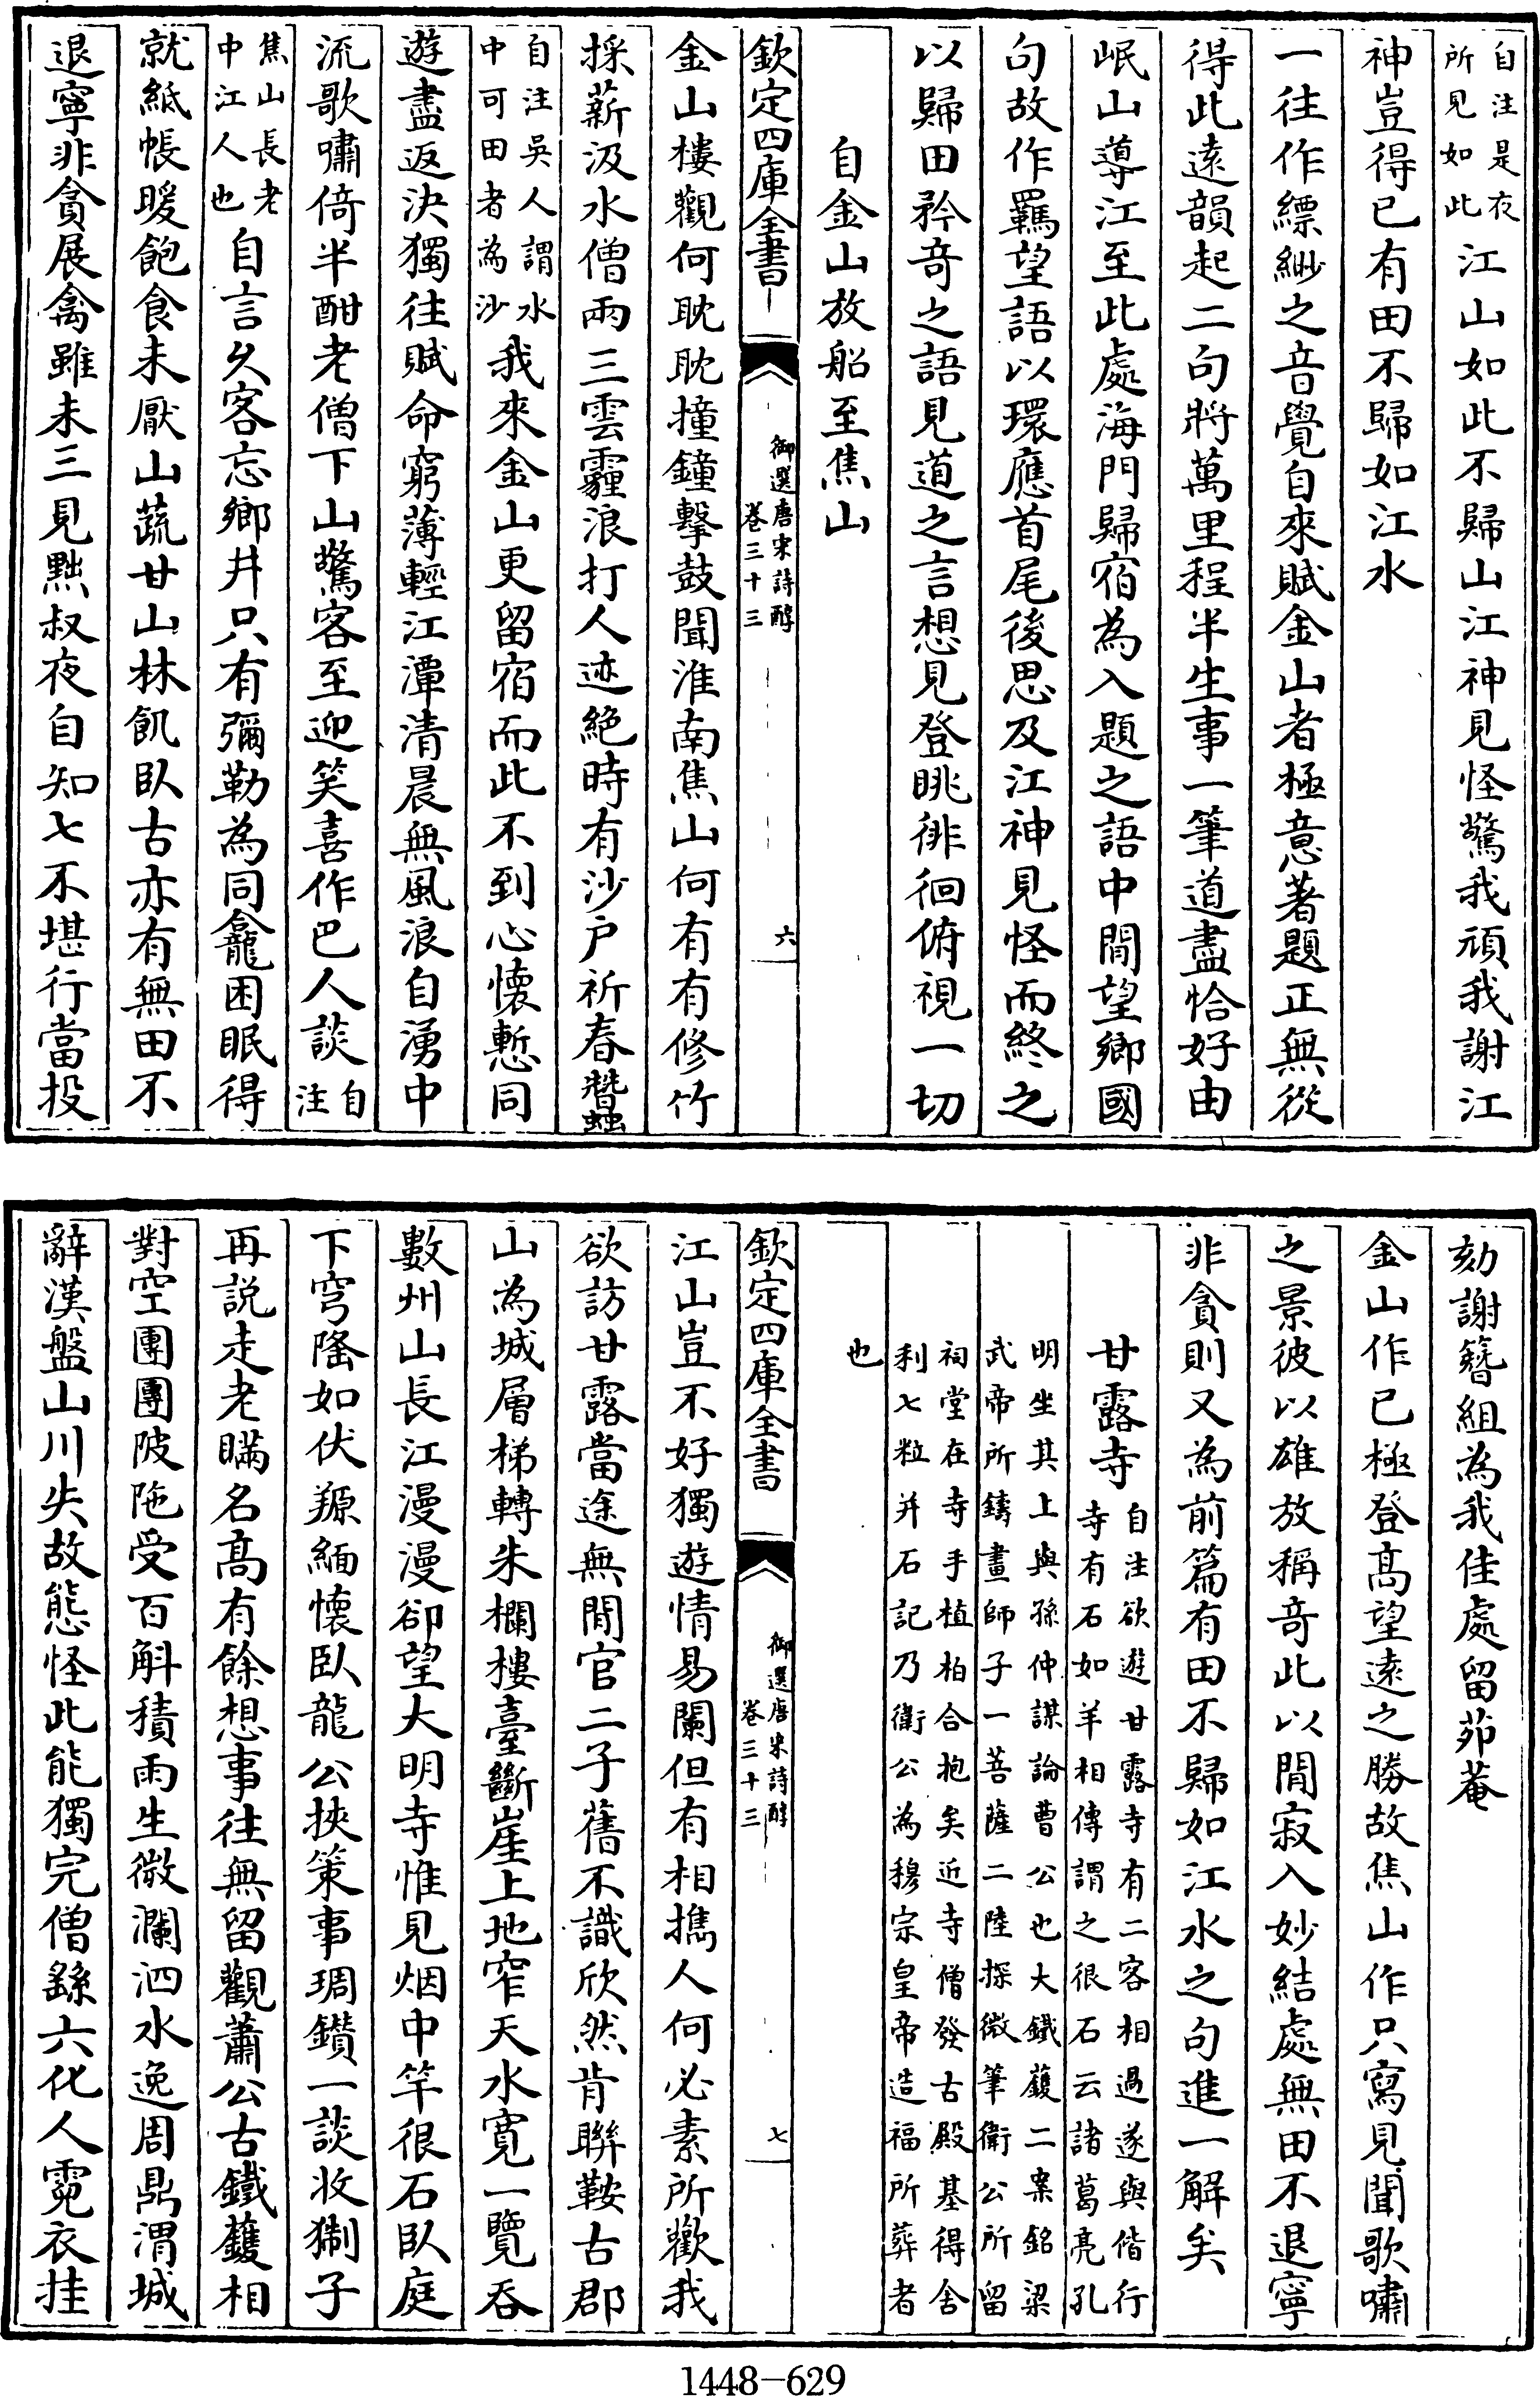 自注是夜所見如此江山如此不歸山江神見怪驚我頑我謝江
神豈得已有田不歸如江水
一往作縹緲之音覺自來賦金山者極意著題正無從
得此遠韻起二句將萬里程半生事一筆道盡恰好由
岷山導江至此處海門歸宿為入題之語中間望鄉國
句故作羈望語以環應首尾後思及江神見怪而終之
以歸田矜奇之語見道之言想見登眺徘徊俯視一切
自金山放船至焦山
欽定四庫全書
御選唐宋詩醇
卷三十三
六
金山樓觀何耽耽撞鐘擊鼓聞淮南焦山何有有修竹
採薪汲水僧兩三雲霾浪打人迹絕時有沙戶祈春蠶
自注吳人謂水中可田者為沙我來金山更留宿而此不到心懷慙同
遊盡返決獨往賦命窮薄輕江潭清晨無風浪自湧中
流歌嘯倚半酣老僧下山驚客至迎笑喜作巴人談自注
焦山長老中江人也自言久客忘鄉井只有彌勒為同龕困眠得
就紙帳暖飽食未厭山蔬甘山林飢臥古亦有無田不
退寧非貪展禽雖未三見黜叔夜自知七不堪行當投
劾謝簪組為我佳處留茆菴
金山作已極登高望遠之勝故焦山作只寫見聞歌嘯
之景彼以雄放稱奇此以閒寂入妙結處無田不退寧
非貪則又為前篇有田不歸如江水之句進一解矣
甘露寺自注欲遊甘露寺有二客相過遂與偕行寺有石如羊相傳謂之很石云諸葛亮孔
明坐其上與孫仲謀論曹公也大鐵鑊二案銘梁武帝所鑄畫師子一菩薩二陸探微筆衛公所留
祠堂在寺手植柏合抱矣近寺僧發古殿基得舍利七粒并石記乃衛公為穆宗皇帝造福所葬者
也
欽定四庫全書
御選唐宋詩醇
卷三十三
七
江山豈不好獨遊情易闌但有相攜人何必素所歡我
欲訪甘露當途無閒官二子舊不識欣然肯聯鞍古郡
山為城層梯轉朱欄樓臺斷崖上地窄天水寬一覽吞
數州山長江漫漫卻望大明寺惟見烟中竿很石臥庭
下穹隆如伏羱緬懷臥龍公挾策事琱鑽一談收猘子
再說走老瞞名高有餘想事往無留觀蕭公古鐵鑊相
對空團團陂陁受百斛積雨生微瀾泗水逸周鼎渭城
辭漢盤山川失故態怪此能獨完僧繇六化人霓衣挂
1448-629